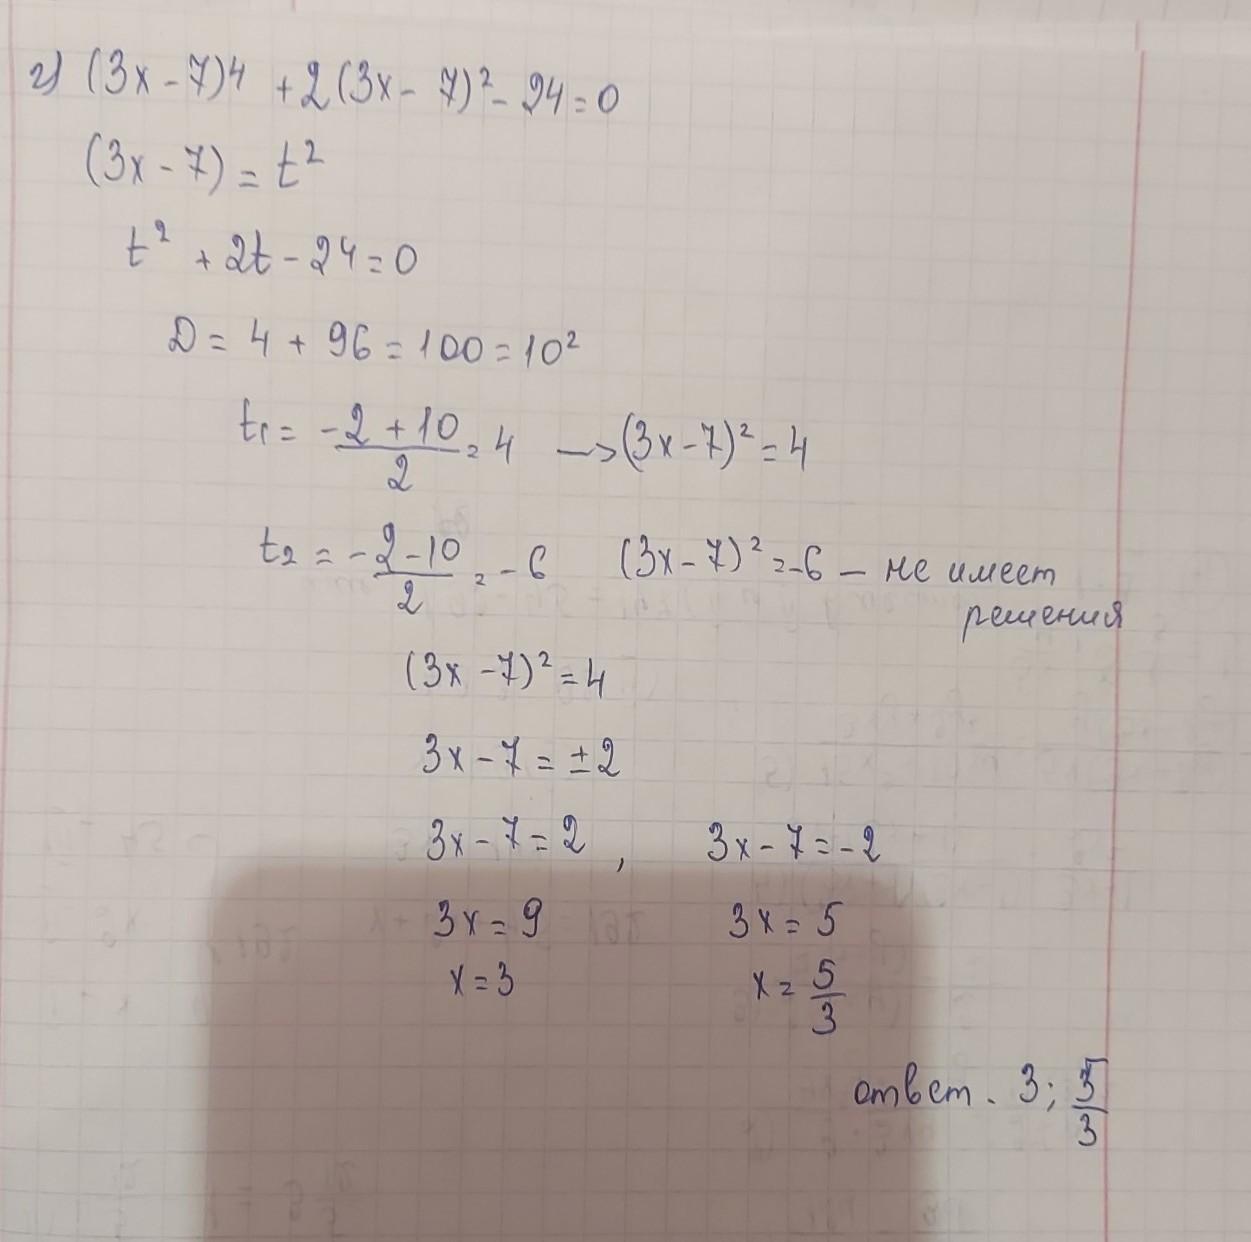 г) (3x - 7)⁴ + 2(3x - 7)² - 24 = 0
(3x - 7) = t²
t² + 2t - 24 = 0
D = 4 + 96 = 100 = 10²
t₁ = (-2 + 10)/2 = 4 —> (3x - 7)² = 4
t₂ = (-2 - 10)/2 = -6 (3x - 7)² = -6 — не имеет
решения
(3x - 7)² = 4
3x - 7 = ±2
3x - 7 = 2 , 3x - 7 = -2
3x = 9 3x = 5
x = 3 x = 5/3
ответ. 3; 5/3